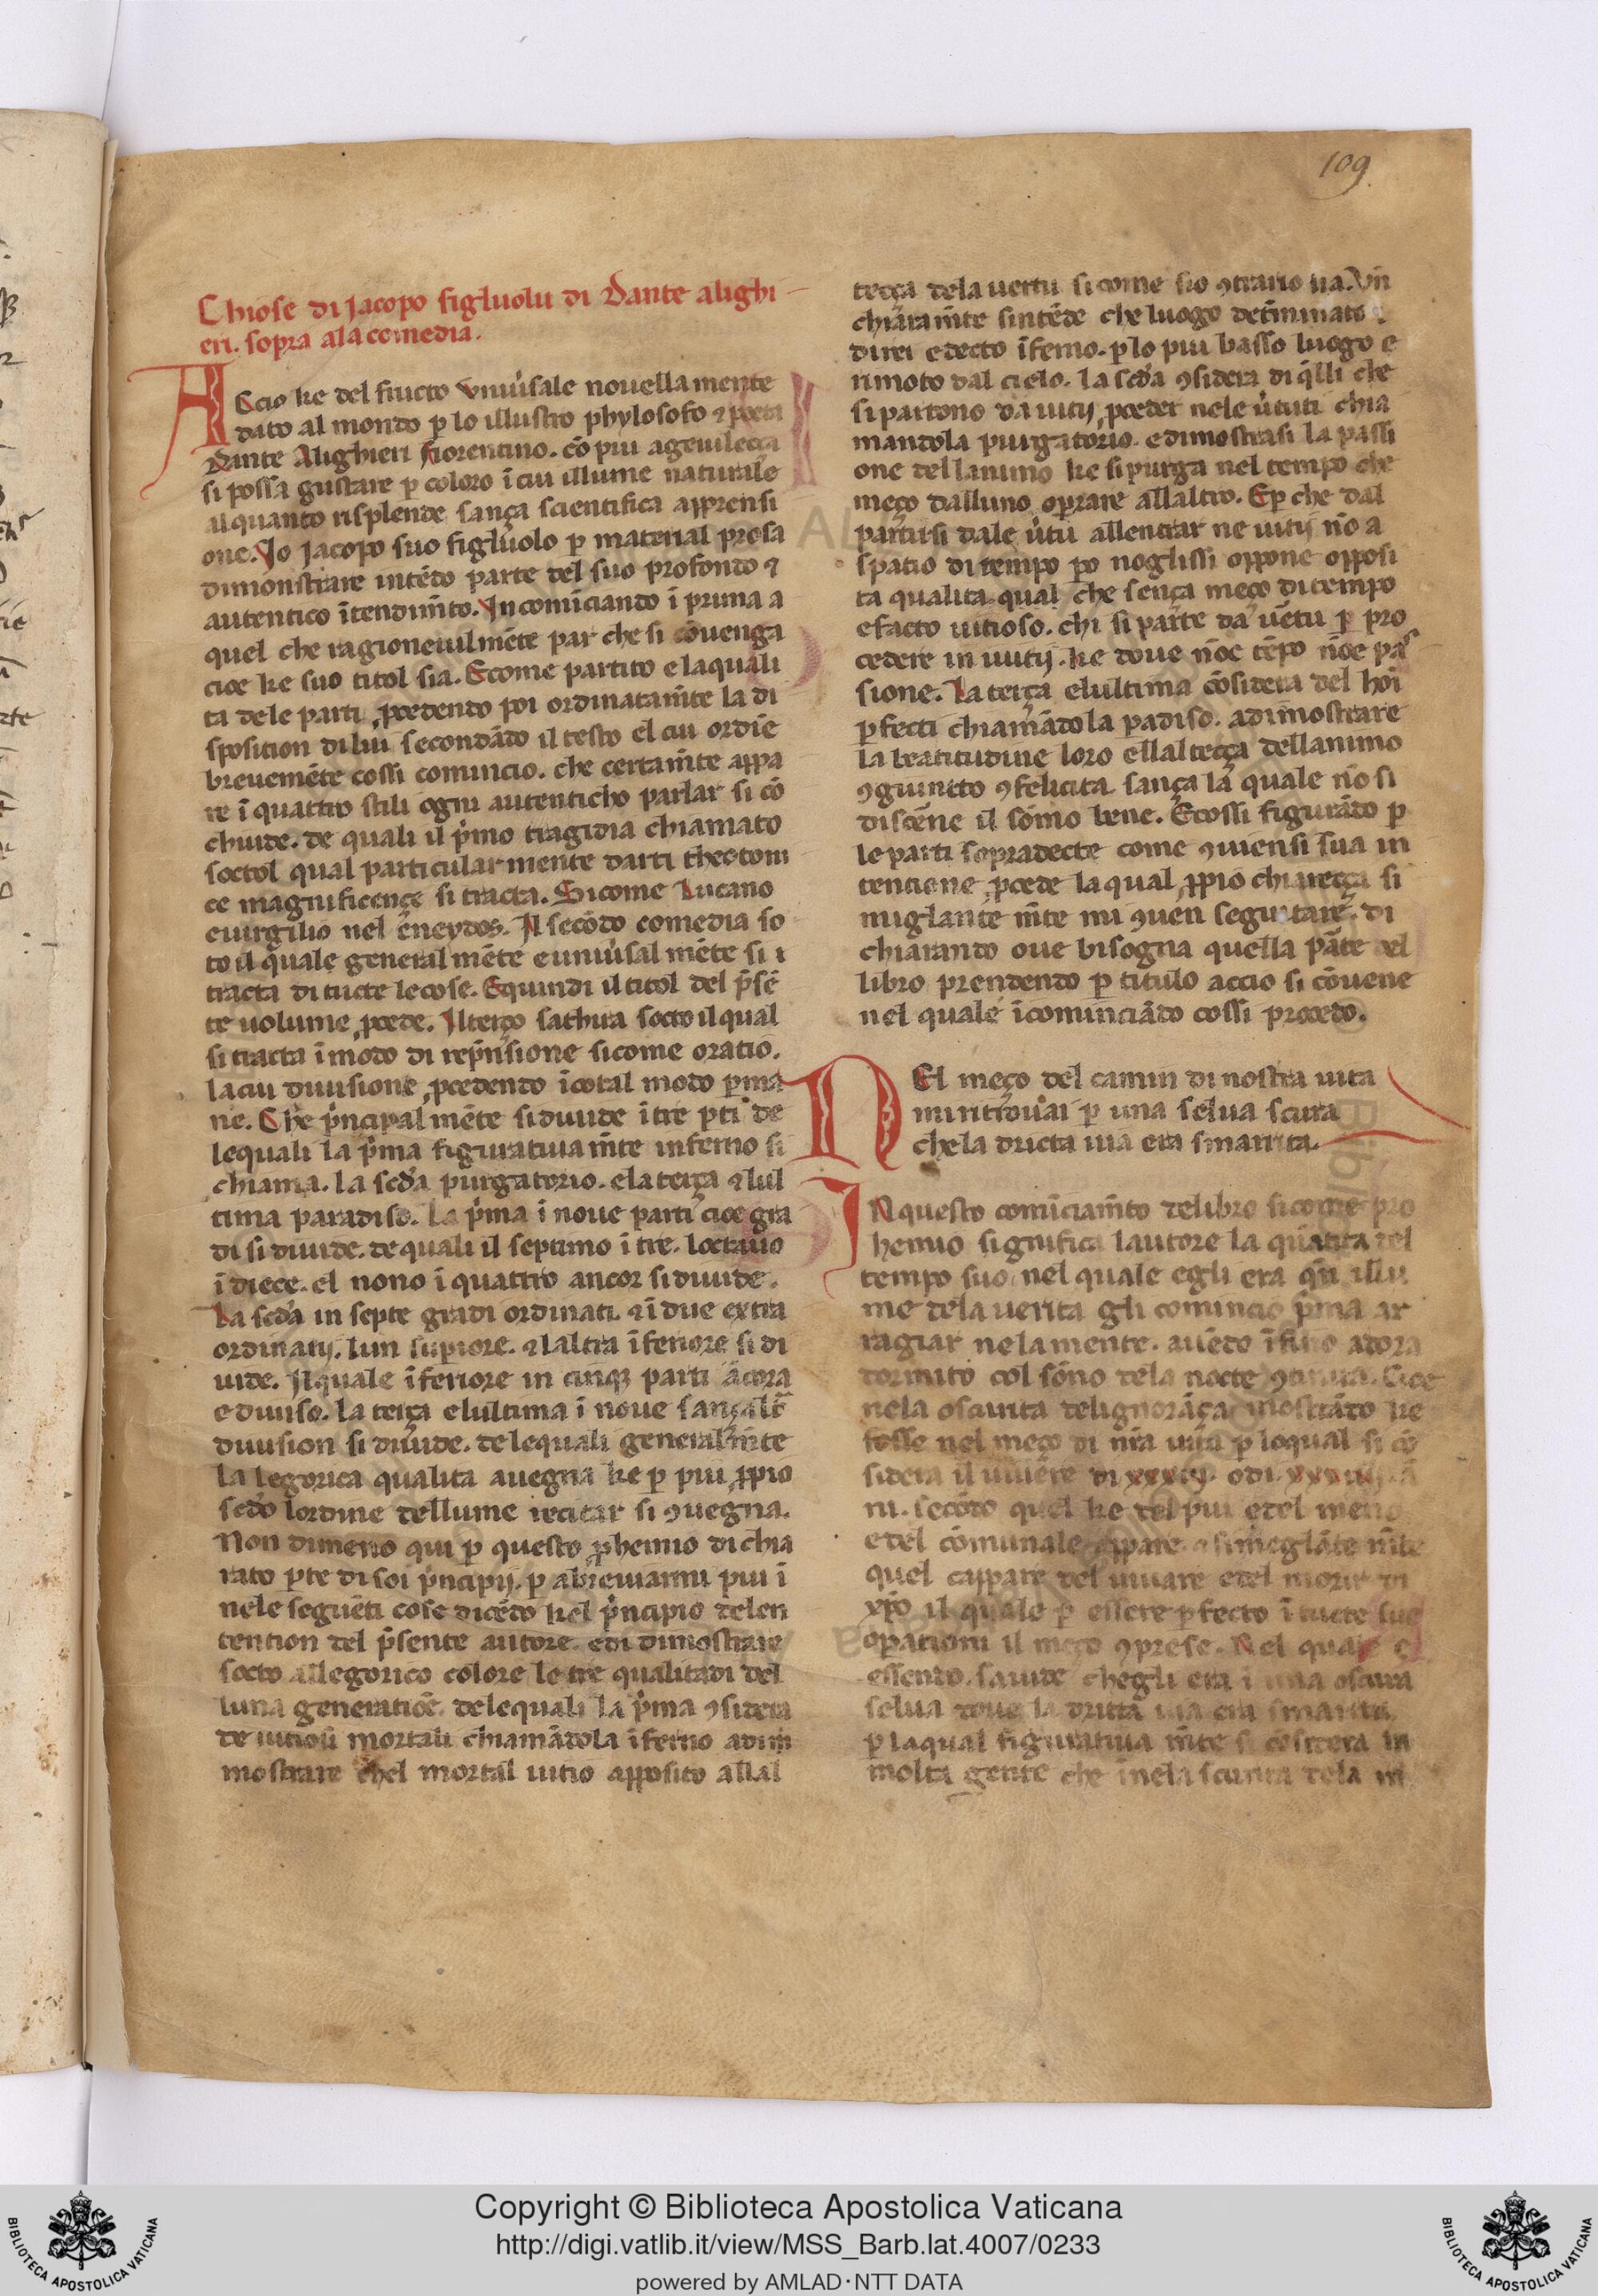 109
Chiose di Jacopo figluolu di Dante alighi
eri. sopra ala comedia.
Accio ke del fructo vniu̓sale nouellamente
dato al mondo p̱ lo illustro phylosofo ⁊ poeta
Dante Alighieri fiorentino. cō piu ageuileçça
si possa gustare p̱ coloro ī cui illume naturale
alquanto risplende sança scientifica apprensi
one. Jo Jacopo suo figluolo p̱ material prosa
dimonstrare intēdo parte del suo profondo ⁊
autentico ītendim̄to. Incomīciando ī prima a
quel che ragioneuilmēte par che si cōuenga
cioe ke suo titol sia. Ecome partito e laquali
ta dele parti, ꝓcedendo poi ordinatam̄te la di
sposition di lui secondādo il testo el cui ordīe
breuemēte cossi comincio. che certam̄te appa
re ī quattro stili ogni autenticho parlar si cō
chiude. de quali il p̓mo tragidia chiamato
soctol qual particularmente darti theotoni
ce magnificençe si tracta. Sicome Lucano
euirgilio nel eneydos. Il secōdo comedia so
to il quale general mēte euniu̓sal mēte si ı
tracta di tucte lecose. Equindi il titol del p̄sē
te uolume ꝓcede. Il terço sathira socto il qual
si tracta ī modo di rep̄nsione sicome oratio.
la cui diuisione ꝓcedendo īcotal modo p̱ma
ne. Che p̓ncipal mēte si diuide ī tre p̱ti de
lequali la p̓ma figuratiua m̄te inferno si
chiama. la scd̄a purgatorio. ela terça ⁊ lul
tima paradiso. La p̓ma ī noue parti cioe gra
di si diuide. de quali il septimo ī tre. loctauo
ī diece. el nono ī quattro ancor si diuide.
La scd̄a in septe gradi ordinati. ⁊ ī due extra
ordinatij. lun sup̱iore. ⁊ laltra īferiore si di
uide. Il quale īferiore in cinqꝫ parti ācora
e diuiso. la terça elultima ī noue sançalt̄
diuision si diuide. de lequali general m̄te
la legorica qualita auegna ke p̱ piu ꝓpio
scd̄o lordine dellume recitar si ꝯuegna.
Non dimeno qui p̱ questo ꝓhemio dichia
rato p̱te di soi p̓ncipij. p̱ abreuiarmi piu ī
nele seguēti cose dicēdo kel p̓ncipio delen
tention del p̄sente autore. edi dimostrare
socto allegorico colore le tre qualitadi del
luna generatiōe. delequali la p̓ma ꝯsidera
de uitiosi mortali chiamādola īferno adim
mostrare chel mortal uitio apposito allal
teçça dela uertu si come suo ꝯtrario ua. Vn
chiaram̄te sintēde che luogo det̄minato
di rei e decto īferno. p̱ lo piu basso luogo e
rimoto dal cielo. La scd̄a ꝯsidera di q̄lli che
si partono da uitij, ꝓceder nele u̓tuti chia
mandola purgatorio. edimostrasi la passi
one dellanimo ke si purga nel tempo che
meço dalluno op̱rare allaltro. Ep̱ che dal
partirsi dale u̓tu allentrar ne uitij nō a
spatio di tempo p̱o noglissi oppone opposi
ta qualita qual che sença meço di tempo
efacto uitioso. chi si parte da uētu p̱ pro
cedere in uitij. ke doue nōe tēpo nōe pas
sione. La terça elultima cōsidera del hoı̄
p̱fecti chiamādola p̱adiso. adimostrare
la beatitudine loro ellalteçça dellanimo
ꝯguincto ꝯfelicita. sança la quale nō si
discēne il sōmo bene. Ecossi figurādo p̱
le parti sopradecte come ꝯuiensi sua in
tencione, ꝓcede laqual ꝓpio chiareçça si
miglante m̄te mi ꝯuen seguitare. di
chiarando oue bisogna quella p̄te del
libro prendendo p̱ titulo accio si cōuene
nel quale īcominciādo cossi procedo.
NEl meço del camin di nostra uita
mi ritrouai p̱ una selua scura
che la dricta uia era smarrita.
IN questo comīciam̄to delibro sicome pro
hemio significa lautore la quātita del
tempo suo, nel quale egli era qn̄ illu
me dela uerita gli comincio p̓ma ar
ragiar nelamente. auēdo īfino adora
dormito col sōno dela nocte ꝯtinua. Cioe
nela oscurita delignorāça mostrādo ke
fosse nel meço di nr̄a uita p̱ loqual si cō
sidera il uiuere di xxxiij. odi. xxxiiij ā
ni. secōdo quel ke del piu edel meno
edel cōmunale appare. ⁊ simeglāte m̄te
quel cappare del uiuare edel morir di
xp̄o il quale p̱ essere p̱fecto ī tucte sue
op̱ationi il meço ꝯprese. Nel quale e
essendo. saude chegli era ī una oscura
selua doue la dritta uia era smarrita.
p̱ laqual figuratiua m̄te si cōsidera la
molta gente che īnela scurita dela
Copyright © Biblioteca Apostolica Vaticana
http://digi.vatlib.it/view/MSS_Barb.lat.4007/0233
powered by AMLAD·NTT DATA
BIBLIOTECA APOSTOLICA VATICANA
BIBLIOTECA APOSTOLICA VATICANA